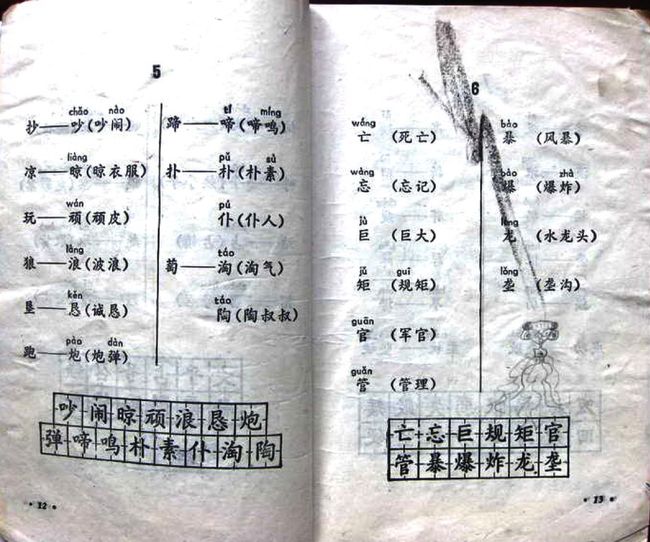 5
chǎo nào
抄——吵(吵闹)
liàng
凉——晾(晾衣服)
wán
玩——顽(顽皮)
làng
狼——浪(波浪)
kěn
垦——恳(诚恳)
pào dàn
跑——炮(炮弹)
tí míng
蹄——啼(啼鸣)
pǔ sù
扑——朴(朴素)
pú
仆(仆人)
táo
萄——淘(淘气)
táo
陶(陶叔叔)
吵闹晾顽浪恳炮
弹啼鸣朴素仆淘陶
·12·
6
wáng
亡 (死亡)
wàng
忘 (忘记)
jù
巨 (巨大)
jǔ guī
矩 (规矩)
guān
官 (军官)
guǎn
管 (管理)
bào
暴 (风暴)
bào zhà
爆 (爆炸)
lóng
龙 (水龙头)
lǒng
垄 (垄沟)
亡忘巨规矩官
管暴爆炸龙垄
·13·